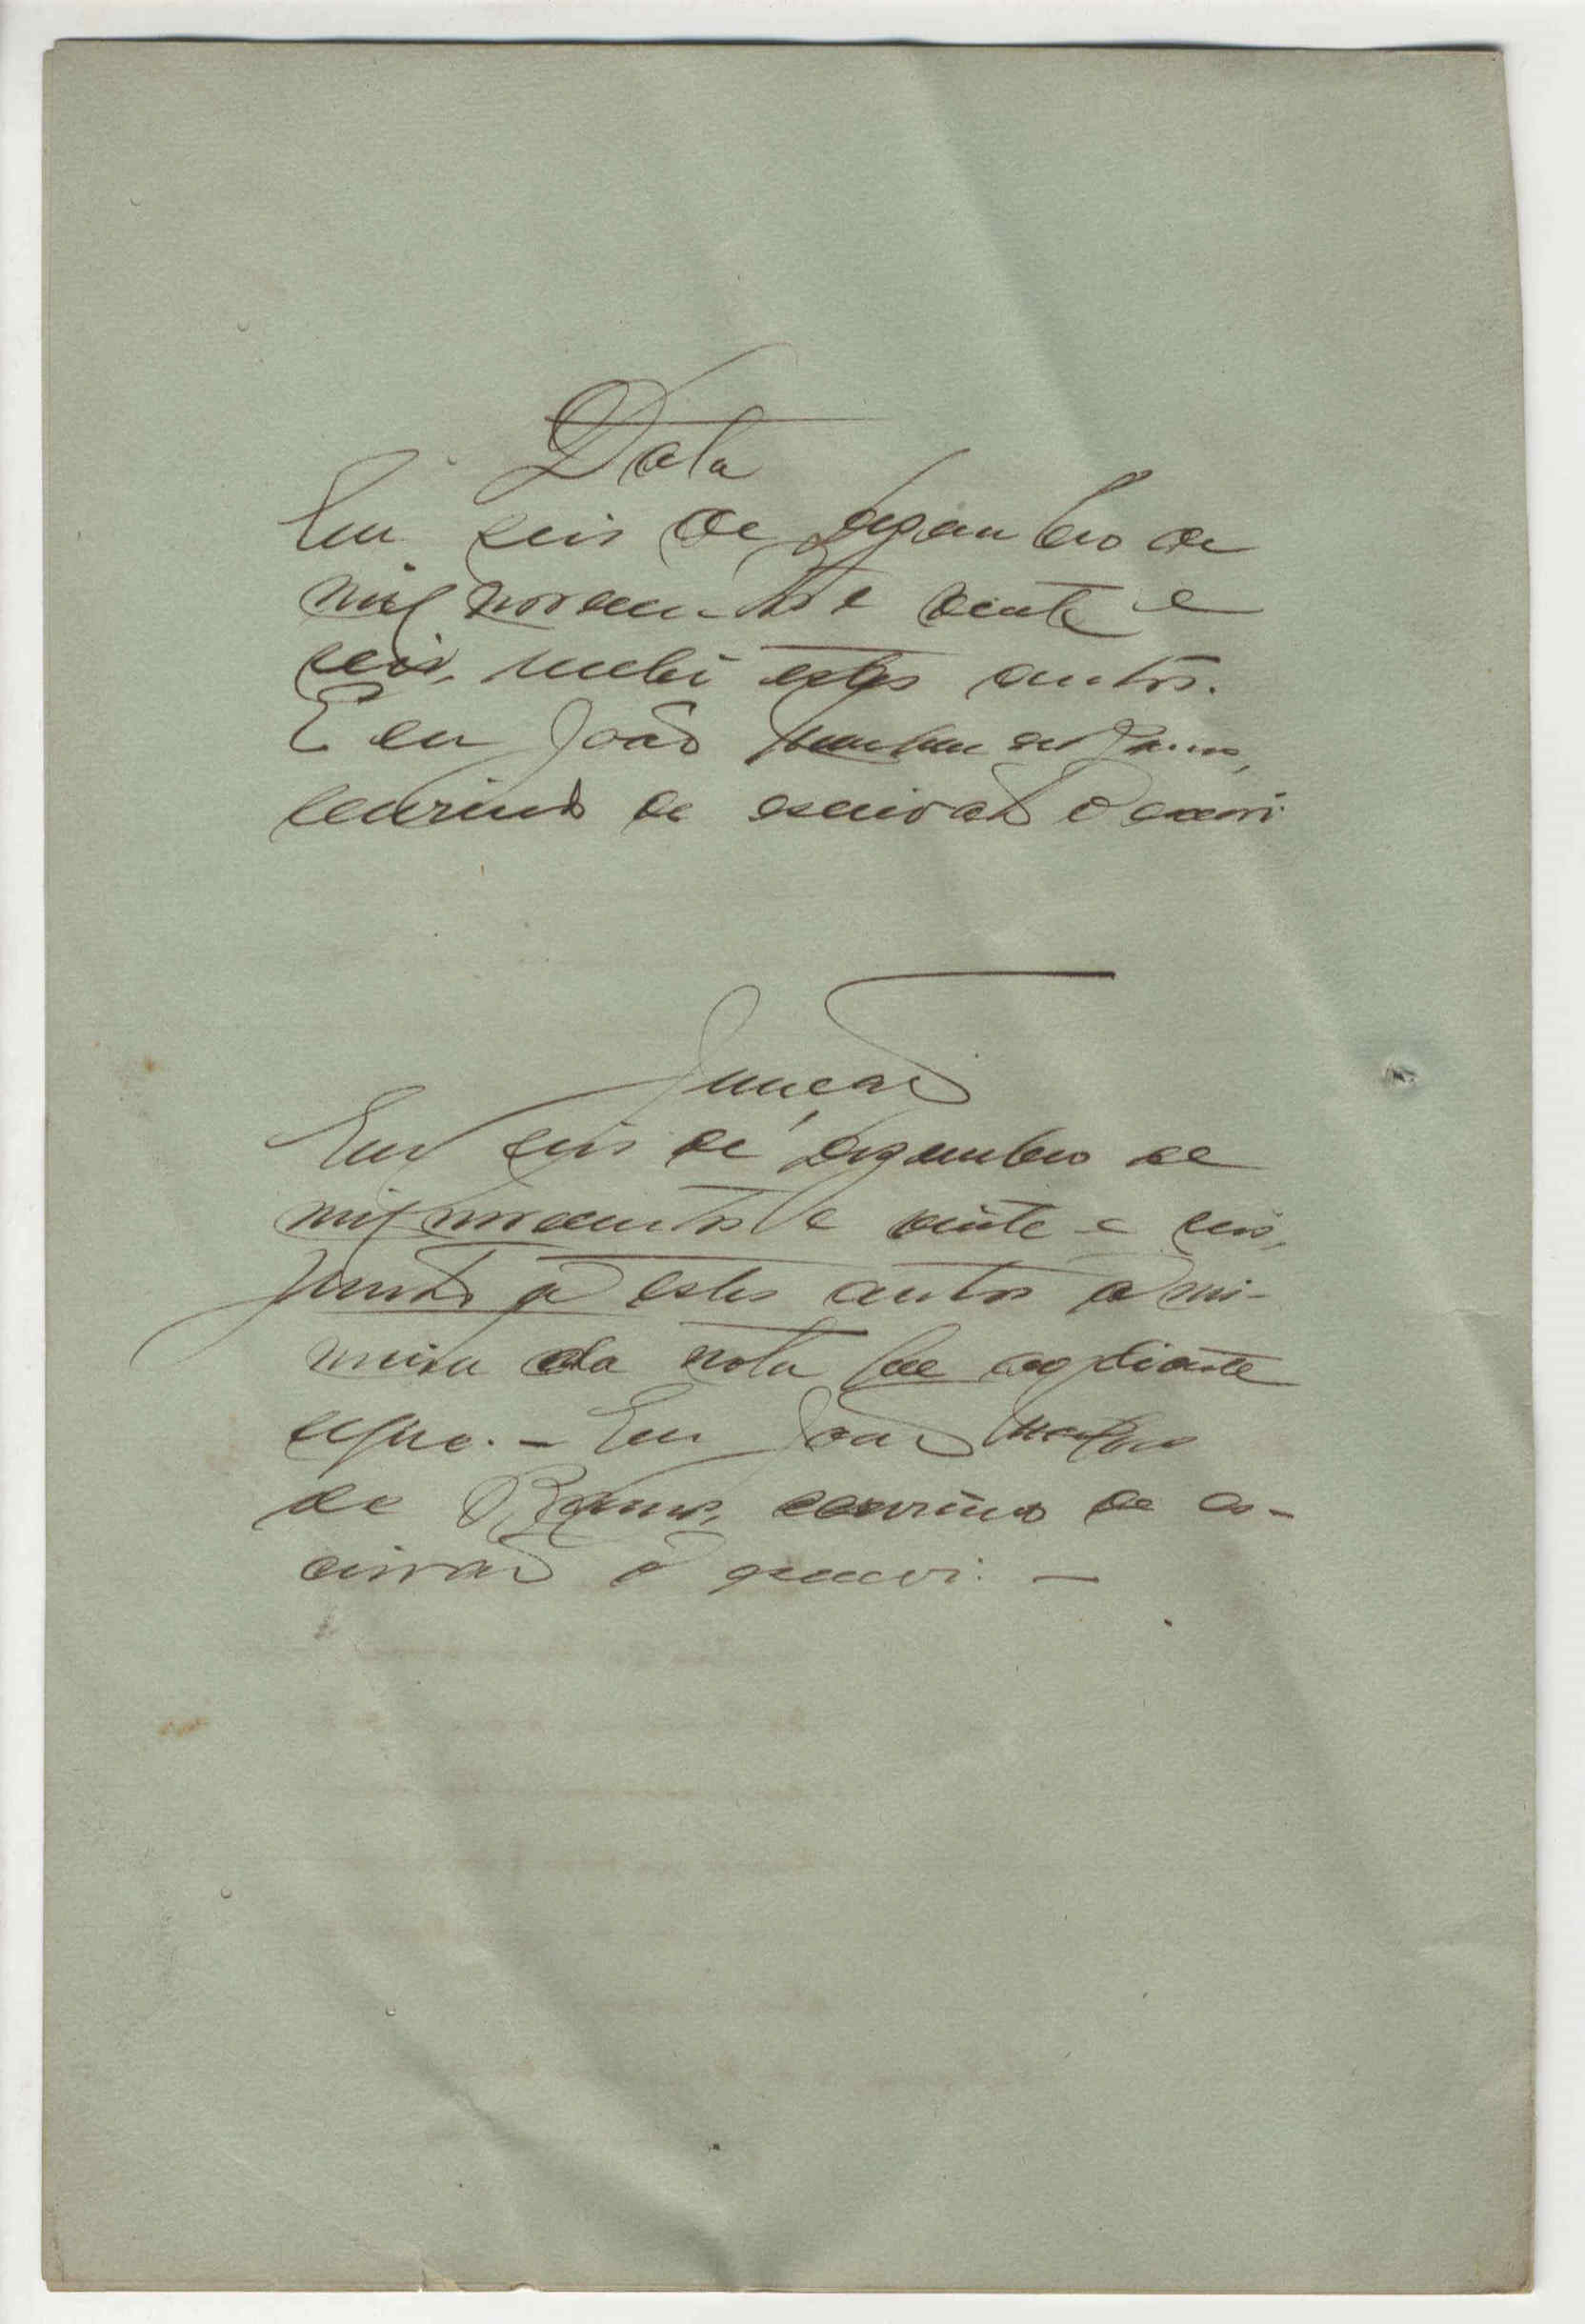 Data
Em seis de dezembro de
mil novecentos e vinte e
seis, recebi estes autos.
E eu João de Ramos,
servindo de escrivão o escrevi
Juncão
Em seis de dezembro de
mil novecentos e vinte e seis,
junto a estes autos a mi-
nuta da nota que adiante
segue. - Eu João
de Ramos, servindo de es-
crivão o escrevi. -